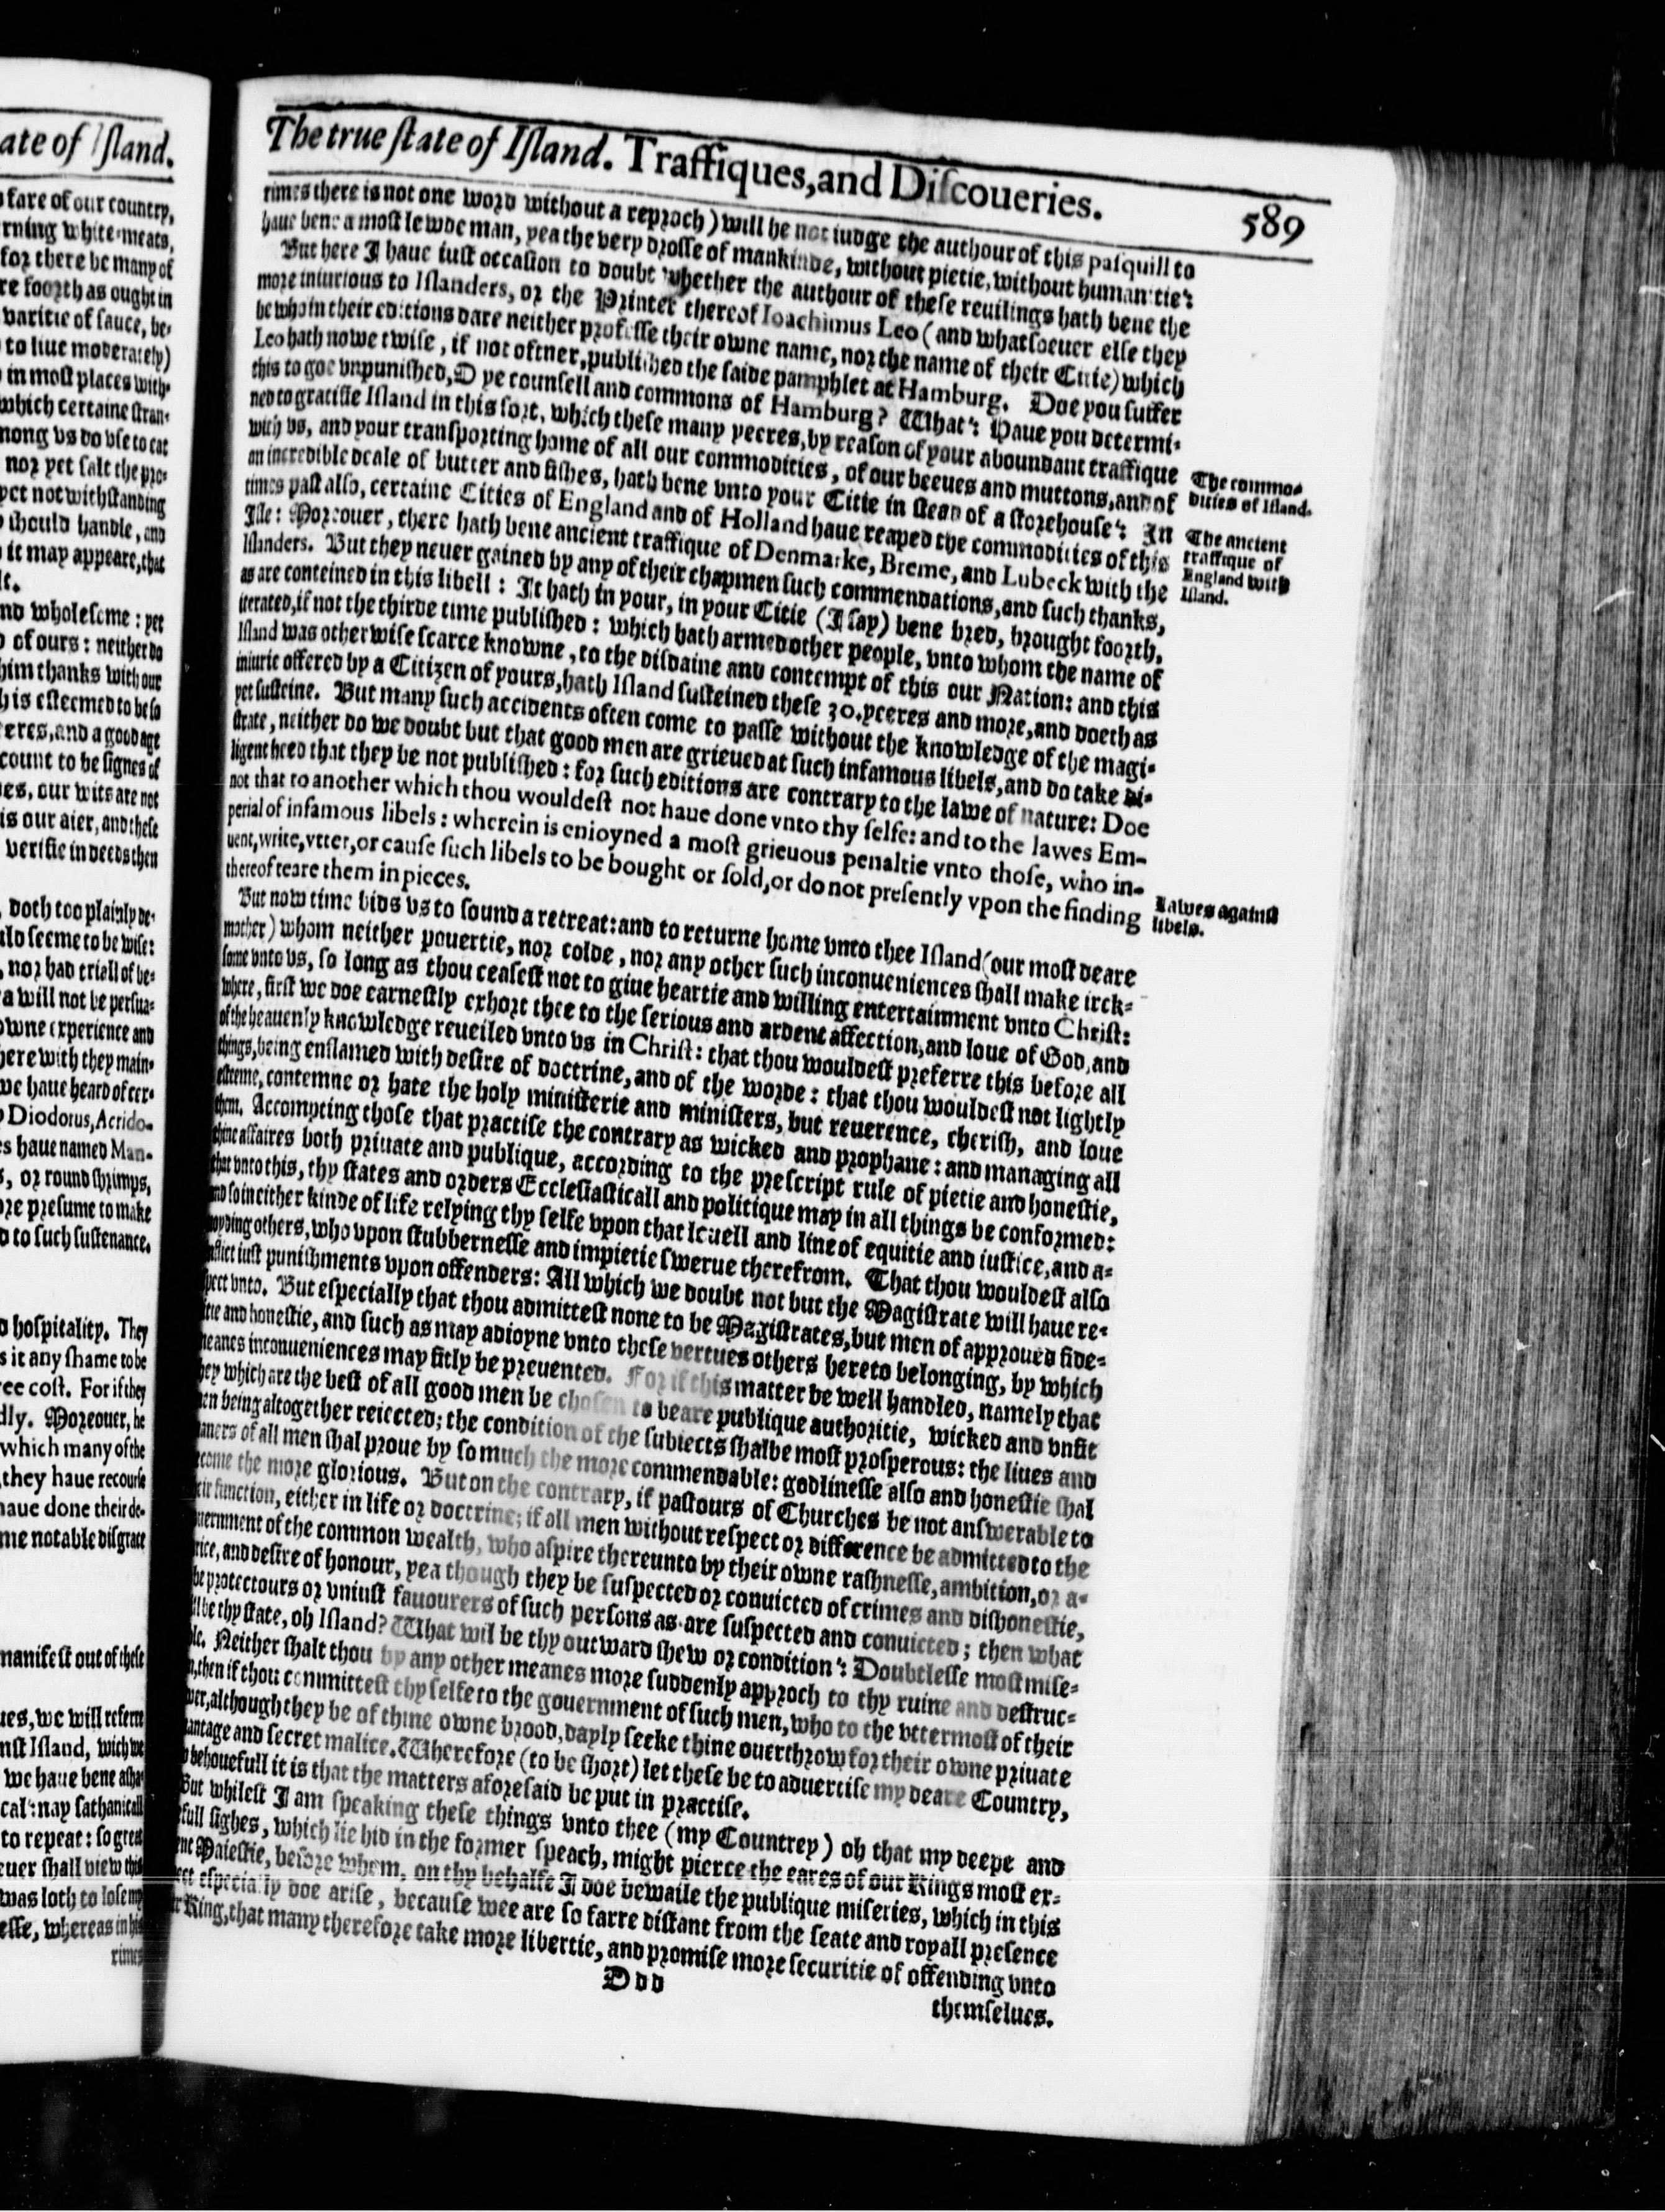 ate of Iſland.
fare of our countrey,
rning white-meats,
for there be many of
re foorth as ought in
varitie of ſauce, be-
to liue moderately)
in moſt places with-
which certaine ſtran-
nong vs do vſe to eat
nor yet ſalt the pro-
pet notwithſtanding
ſhould handle, and
it may appeare, that
nd wholeſome: yet
of ours: neither do
him thanks with our
h is eſteemed to be ſo
eeres, and a good age
count to be ſignes of
es, our wits are not
is our aier, and theſe
verifie in deeds then
doth too plainly de-
uld ſeeme to be wiſe:
nor had triell of be-
a will not be perſua-
owne experience and
herewith they main-
we haue heard of cer-
Diodorus, Acrido-
s haue named Man-
s, or round ſhrimps,
ore preſume to make
d to ſuch ſuſtenance.
o hoſpitality. They
s it any ſhame to be
ree coſt. For if they
dly. Moreouer, he
which many of the
they haue recourſe
haue done their de-
me notable diſgrace
manifeſt out of theſe
ues, we will referre
nſt Iſland, wich we
we haue bene aſha-
cal: nay ſathanicall
to repeat: ſo great
euer ſhall view this
was loth to loſe my
eſſe, whereas in his
rimes
The true ſtate of Iſland. Traffiques, and Diſcoueries. 589
rimes there is not one word without a reproch) will he not iudge the authour of this paſquill to
haue bene a moſt lewde man, yea the very droſſe of mankinde, without pietie, without humanitie?
But here I haue iuſt occaſion to doubt whether the authour of theſe reuilings hath bene the
more iniurious to Iſlanders, or the Printer thereof Ioachimus Leo (and whatſoeuer elſe they
be who in their editions dare neither profeſſe their owne name, nor the name of their Citie) which
Leo hath nowe twiſe, if not oftner, publiſhed the ſaide pamphlet at Hamburg. Doe you ſuffer
this to goe vnpuniſhed, O ye counſell and commons of Hamburg? What? Haue you determi-
ned to gratifie Iſland in this ſort, which theſe many yeeres, by reaſon of your aboundant traffique
with vs, and your tranſporting home of all our commodities, of our beeues and muttons, and of
an incredible deale of butter and fiſhes, hath bene vnto your Citie in ſtead of a ſtorehouſe? In
times paſt alſo, certaine Cities of England and of Holland haue reaped the commodities of this
Iſle: Moreouer, there hath bene ancient traffique of Denmarke, Breme, and Lubeck with the
Iſlanders. But they neuer gained by any of their chapmen ſuch commendations, and ſuch thanks,
as are conteined in this libell: It hath in your, in your Citie (I ſay) bene bred, brought foorth,
iterated, if not the thirde time publiſhed: which hath armed other people, vnto whom the name of
Iſland was otherwiſe ſcarce knowne, to the diſdaine and contempt of this our Nation: and this
iniurie offered by a Citizen of yours, hath Iſland ſuſteined theſe 30. yeeres and more, and doeth as
yet ſuſteine. But many ſuch accidents often come to paſſe without the knowledge of the magi-
ſtrate, neither do we doubt but that good men are grieued at ſuch infamous libels, and do take di-
ligent heed that they be not publiſhed: for ſuch editions are contrary to the lawe of nature: Doe
not that to another which thou wouldeſt not haue done vnto thy ſelfe: and to the lawes Em-
perial of infamous libels: wherein is enioyned a moſt grieuous penaltie vnto thoſe, who in-
uent, write, vtter, or cauſe ſuch libels to be bought or ſold, or do not preſently vpon the finding
thereof teare them in pieces.
The commo-
dities of Iſland.
The ancient
traffique of
England with
Iſland.
Lawes againſt
libels.
But now time bids vs to ſound a retreat: and to returne home vnto thee Iſland (our moſt deare
mother) whom neither pouertie, nor colde, nor any other ſuch inconueniences ſhall make irck-
ſome vnto vs, ſo long as thou ceaſeſt not to giue heartie and willing entertainment vnto Chriſt:
where, firſt we doe earneſtly exhort thee to the ſerious and ardent affection, and loue of God, and
of the heauenly knowledge reueiled vnto vs in Chriſt: that thou wouldeſt preferre this before all
things, being enflamed with deſire of doctrine, and of the worde: that thou wouldeſt not lightly
eſteeme, contemne or hate the holy miniſterie and miniſters, but reuerence, cheriſh, and loue
them. Accompting thoſe that practiſe the contrary as wicked and prophane: and managing all
thine affaires both priuate and publique, according to the preſcript rule of pietie and honeſtie,
that vnto this, thy ſtates and orders Eccleſiaſticall and politique may in all things be conformed:
and ſo in either kinde of life relying thy ſelfe vpon that leuell and line of equitie and iuſtice, and a-
uoyding others, who vpon ſtubberneſſe and impietie ſwerue therefrom. That thou wouldeſt alſo
inflict iuſt puniſhments vpon offenders: All which we doubt not but the Magiſtrate will haue re-
ſpect vnto. But eſpecially that thou admitteſt none to be Magiſtrates, but men of approued fide-
litie and honeſtie, and ſuch as may adioyne vnto theſe vertues others hereto belonging, by which
meanes inconueniences may fitly be preuented. For if this matter be well handled, namely that
they which are the beſt of all good men be choſen to beare publique authoritie, wicked and vnfit
men being altogether reiected; the condition of the ſubiects ſhalbe moſt proſperous: the liues and
maners of all men ſhal proue by ſo much the more commendable: godlineſſe alſo and honeſtie ſhal
become the more glorious. But on the contrary, if paſtours of Churches be not anſwerable to
their function, either in life or doctrine; if all men without reſpect or difference be admitted to the
gouernment of the common wealth, who aſpire thereunto by their owne raſhneſſe, ambition, or a-
uarice, and deſire of honour, yea though they be ſuſpected or conuicted of crimes and diſhoneſtie,
be protectours or vniuſt fauourers of ſuch perſons as are ſuſpected and conuicted; then what
wil be thy ſtate, oh Iſland? What wil be thy outward ſhew or condition? Doubtleſſe moſt miſe-
rable. Neither ſhalt thou by any other meanes more ſuddenly approch to thy ruine and deſtruc-
tion, then if thou committeſt thy ſelfe to the gouernment of ſuch men, who to the vttermoſt of their
power, although they be of thine owne brood, dayly ſeeke thine ouerthrow for their owne priuate
aduantage and ſecret malice. Wherefore (to be ſhort) let theſe be to aduertiſe my deare Country,
how behouefull it is that the matters aforeſaid be put in practiſe.
But whileſt I am ſpeaking theſe things vnto thee (my Countrey) oh that my deepe and
full ſighes, which lie hid in the former ſpeach, might pierce the eares of our Kings moſt ex-
cellent Maieſtie, before whom, on thy behalfe I doe bewaile the publique miſeries, which in this
reſpect eſpecially doe ariſe, becauſe wee are ſo farre diſtant from the ſeate and royall preſence
our King, that many therefore take more libertie, and promiſe more ſecuritie of offending vnto
Ddd
themſelues.